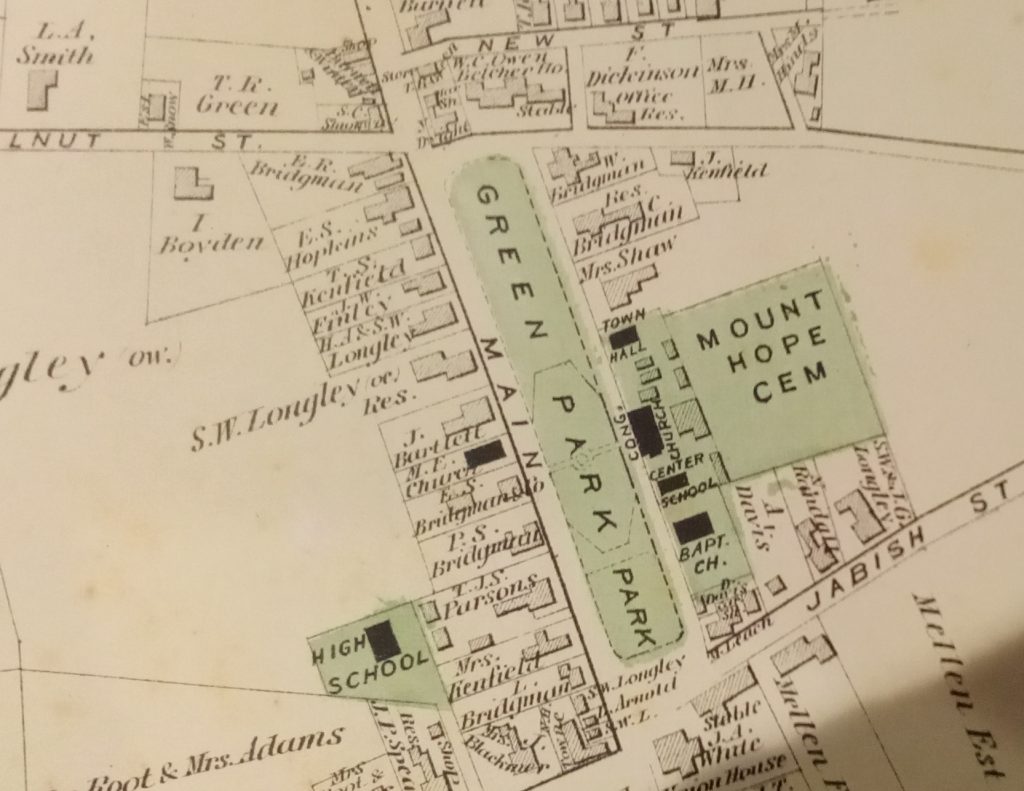 L.A.
Smith
T.R.
Green
Burnett
NEW ST
W.C. Owen
Belcher Ho.
Stable
F.
Dickinson
Office
Res.
Mrs.
M.H.
LNUT ST.
E.R.
Bridgman
I.
Boyden
E.S.
Hopkins
T.S.
Kenfield
J.W.
Finley
H.J.&S.W.
Longley
gley (ow.)
S.W. Longley (oc.)
Res.
J.
Bartlett
M.E.
Church
E.S.
Bridgman & Co
P.S.
Bridgman
T.J.S.
Parsons
Mrs.
Kenfield
L.
Bridgman
Mrs.
Blackmer
MAIN
GREEN
PARK
PARK
W.
Bridgman
Res.
C.
Bridgman
Mrs. Shaw
J.
Kenfield
TOWN
HALL
CONG.
CHURCH
CENTER
SCHOOL
BAPT.
CH.
MOUNT
HOPE
CEM
A.
Davis
N.
Randall
S.W.&J.G.
Longley
JABISH ST
HIGH
SCHOOL
S.W. Longley
Arnold
S.W.L.
M. Leach
Stable
J.A.
White
Union House
Mellen E
Mellen Est
Root & Mrs. Adams
J.P. Spea
Res.
Shop
Mrs
Root